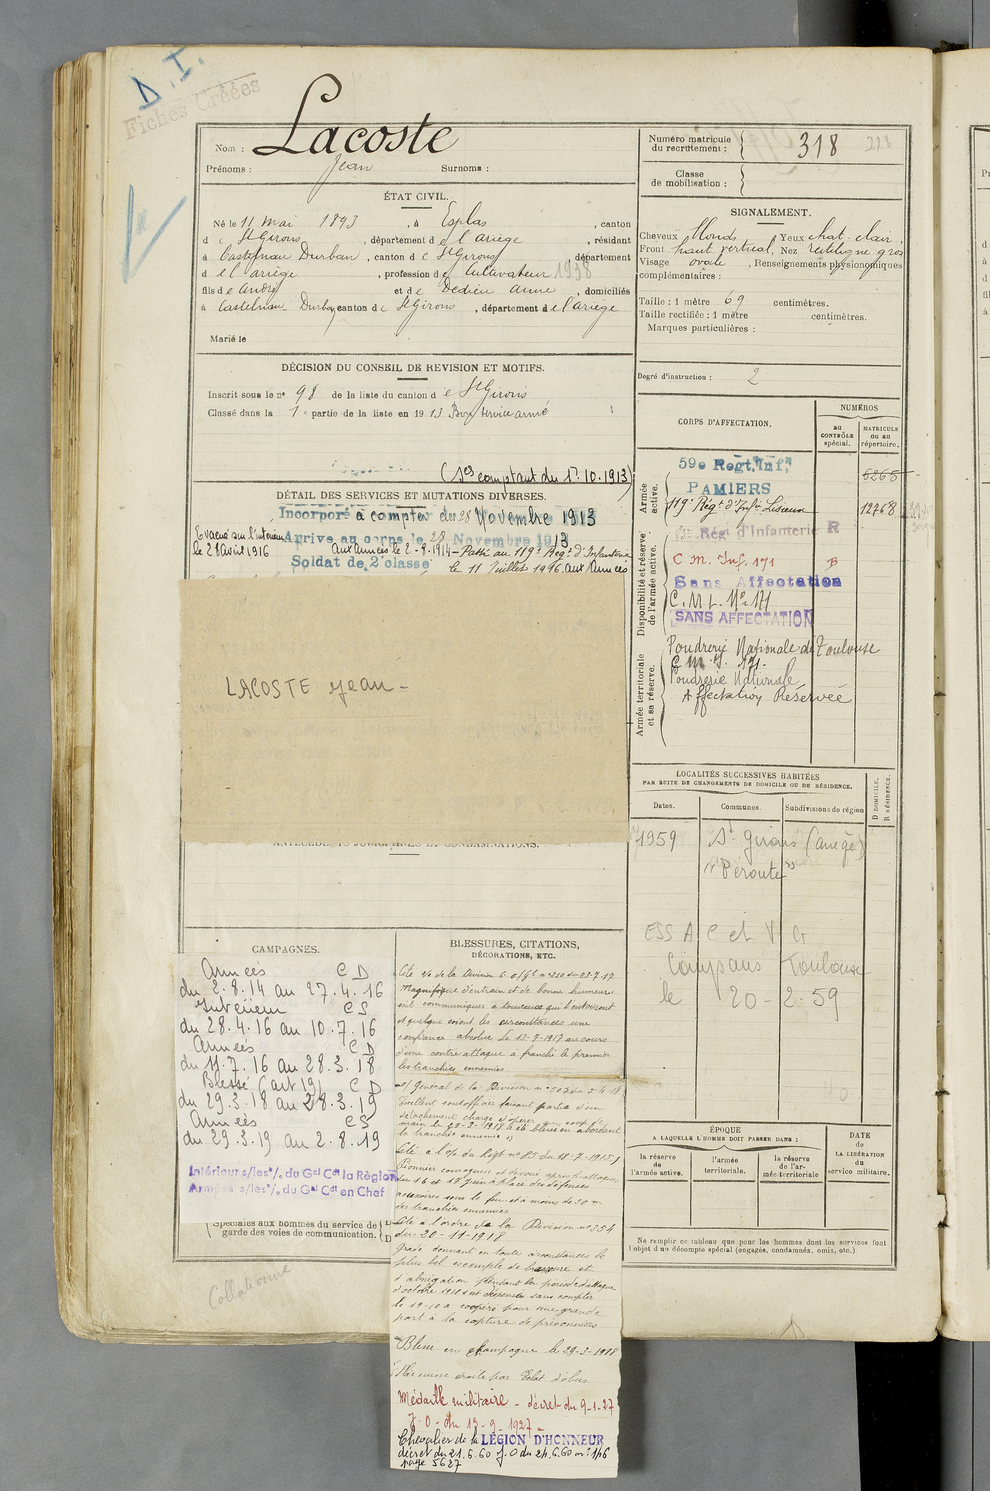 D. I.
Fiches Créées
Nom : Lacoste
Prénoms : Jean Surnoms :
Numéro matricule du recrutement : 318 213
Classe de mobilisation :
ÉTAT CIVIL.
Né le 11 Mai 1893, à Esplas, canton
d e St Girons, département d e l'ariège, résidant
à Castelnau Durban, canton d e St Girons, département
d e l'ariège, profession d e Cultivateur 1938
fils d e André et d e Dedieu Anne, domiciliés
à Castelnau-Durban canton d e St Girons, département d e l'ariège
Marié le
SIGNALEMENT.
Cheveux blonds, Yeux chat. clair,
Front haut vertical, Nez rectiligne gros
Visage ovale, Renseignements physionomiques
complémentaires :
Taille : 1 mètre 69 centimètres.
Taille rectifiée : 1 mètre centimètres.
Marques particulières :
DÉCISION DU CONSEIL DE REVISION ET MOTIFS.
Inscrit sous le n° 98 de la liste du canton d e St Girons
Classé dans la 1e partie de la liste en 1913 Bon service armé
Degré d'instruction : 2
(Ses comptant du 1er.10.1913)
DÉTAIL DES SERVICES ET MUTATIONS DIVERSES.
Incorporé à compter du 28 Novembre 1913
Évacué sur l'intérieur Arrivé au corps le 28 Novembre 1913
le 28 avril 1916 aux armées le 2-8-1914 - Passé au 119e Régt d'Infanterie
Soldat de 2e classe le 11 Juillet 1916 aux Armées
LACOSTE Jean -
CORPS D'AFFECTATION.
NUMÉROS
au CONTRÔLE spécial.
MATRICULE ou au répertoire.
Armée active.
59e Regt. Inf. 6265
PAMIERS
119e Régt d'Infie Lisieux 12768
Disponibilité et réserve de l'armée active.
Régt d'Infanterie R
C. M. Inf. 171 B
Sans Affectation
C. M. I. No 171
SANS AFFECTATION
Armée territoriale et sa réserve.
Poudrerie Nationale de Toulouse
C. M. I. 171.
Poudrerie Nationale
Affectation Réservée
LOCALITÉS SUCCESSIVES HABITÉES
PAR SUITE DE CHANGEMENTS DE DOMICILE OU DE RÉSIDENCE.
Dates. Communes. Subdivisions de région
D DOMICILE. R RÉSIDENCE.
1959 St Girons (ariège)
"Peroute"
ESS A C et V G
Compans Toulouse
le 20-2-59
ANTÉCÉDENTS JUDICIAIRES ET CONDAMNATIONS.
CAMPAGNES.
Armées C D
du 2.8.14 au 27.4.16
Intérieur C S
du 28.4.16 au 10.7.16
Armées C D
du 11.7.16 au 28.3.18
Blessé (art 19) C D
du 29.3.18 au 28.3.19
Armées C S
du 29.3.19 au 2.8.19
Intérieur s/les o/. du Gal Cdt la Région
Armées s/les o/. du Gal Cdt en Chef
Spéciales aux hommes du service de
garde des voies de communication.
Collationné
BLESSURES, CITATIONS,
DÉCORATIONS, ETC.
Magnifique d'entrain et de bonne humeur
sait communiquer à tous ceux qui l'entourent
et quelque soient les circonstances une
confiance absolue. Le 13-7-1917 au cours
d'une contre attaque a franchi le premier
les tranchées ennemies
Excellent sous officier faisant partie d'un
détachement chargé d'opérer un coup de
main le 29-3-1918 a été blessé en abordant
la tranchée ennemie »
Cité à l'o/. du Régt no 85 du 18-7-1915
Pionnier courageux et dévoué après l'attaque
du 16 et 17 Juin a placé des défenses
accessoires sous le feu et à moins de 50 m
des tranchées ennemies
Cité à l'ordre de la Division no 354
du 20-11-1918
Gradé donnant en toute circonstances le
plus bel exemple de bravoure et
d'abnégation pendant la période d'attaque
d'octobre 1918 s'est dépensé sans compter
le 19-10 a coopéré pour une grande
part à la capture de prisonniers
Blessé en Champagne le 29-3-1918
Plaie cuisse droite par Éclat d'obus
Médaille militaire - décret du 9-1-27
J.O. du 13-9-1927 -
Chevalier de la LÉGION D'HONNEUR
décret du 21.6.60 J.O du 24.6.60 no 146
page 5627
ÉPOQUE
A LAQUELLE L'HOMME DOIT PASSER DANS :
la réserve de l'armée active. l'armée territoriale. la réserve de l'armée territoriale
DATE de LA LIBÉRATION du service militaire.
Ne remplir ce tableau que pour les hommes dont les services font
l'objet d'un décompte spécial (engagés, condamnés, omis, etc.)